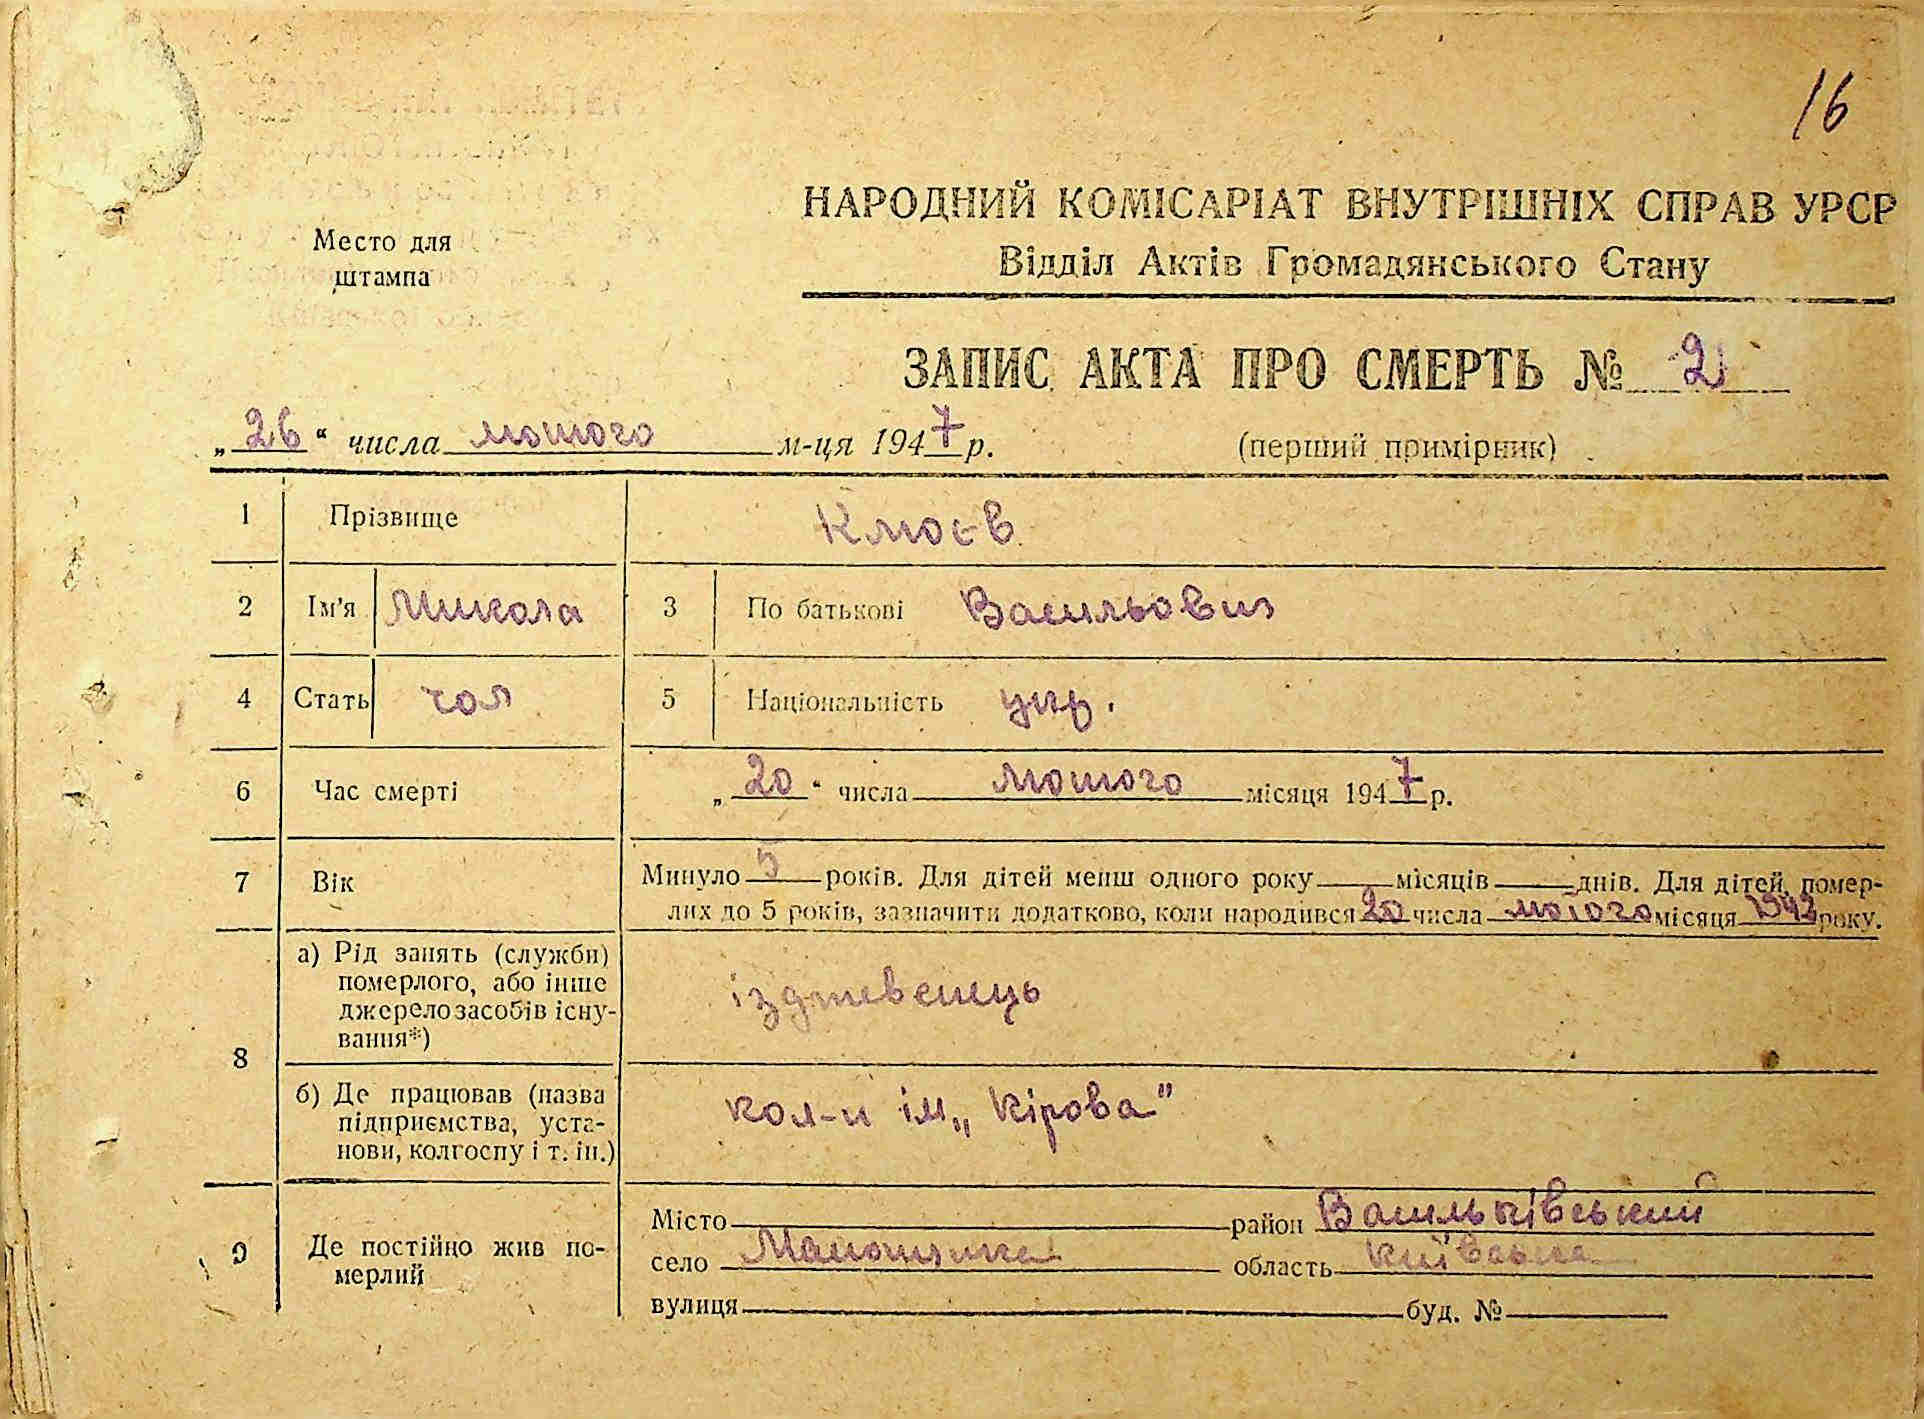 16
Место для
штампа
НАРОДНИЙ КОМІСАРІАТ ВНУТРІШНІХ СПРАВ УРСР
Відділ Актів Громадянського Стану
ЗАПИС АКТА ПРО СМЕРТЬ № 2
„26“ числа лютого м-ця 1947 р.
(перший примірник)
1 Прізвище Клюєв
2 Ім'я Микола 3 По батькові Васильович
4 Стать чол 5 Національність укр.
6 Час смерті „20“ числа лютого місяця 1947 р.
7 Вік Минуло 5 років. Для дітей менш одного року місяців днів. Для дітей, помер-
лих до 5 років, зазначити додатково, коли народився 20 числа лютого місяця 1942 року.
8 а) Рід занять (служби)
померлого, або інше
джерело засобів існу-
вання*)
іздивенець
б) Де працював (назва
підприємства, уста-
нови, колгоспу і т. ін.)
кол-п ім „Кірова"
9 Де постійно жив по-
мерлий
Місто район Васильківський
село область Київська
вулиця буд. №